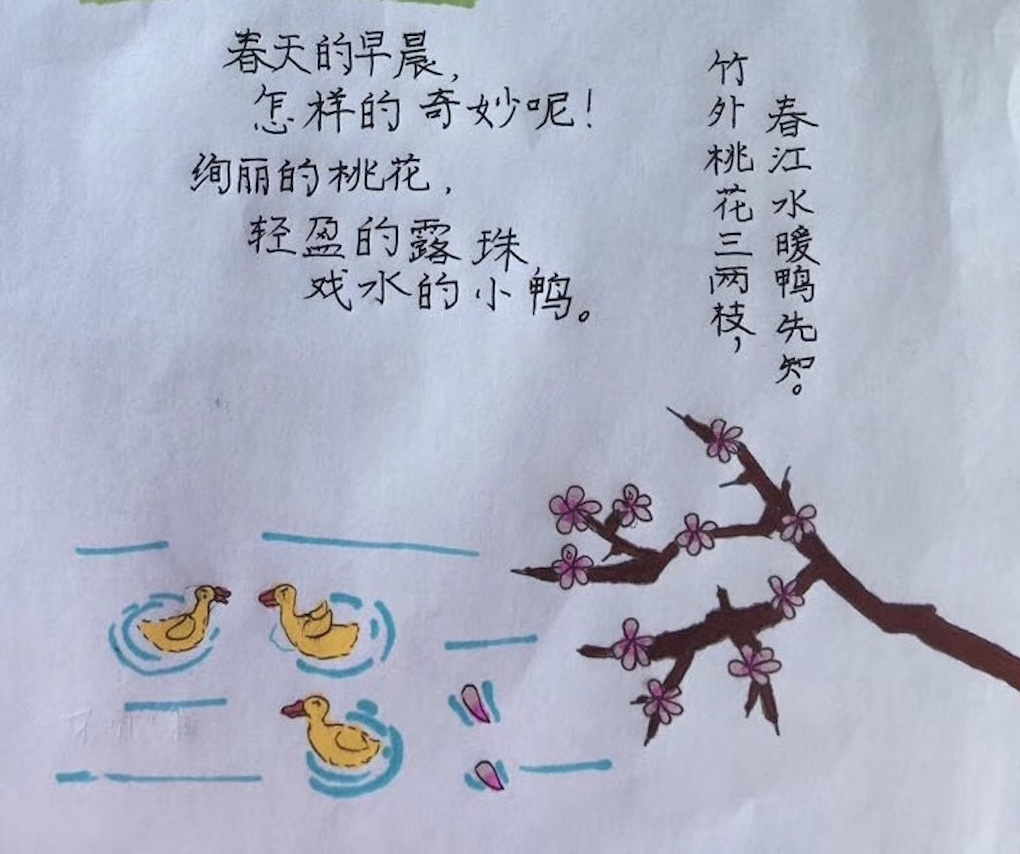 春天的早晨，
怎样的奇妙呢！
绚丽的桃花，
轻盈的露珠
戏水的小鸭。
竹外桃花三两枝，
春江水暖鸭先知。